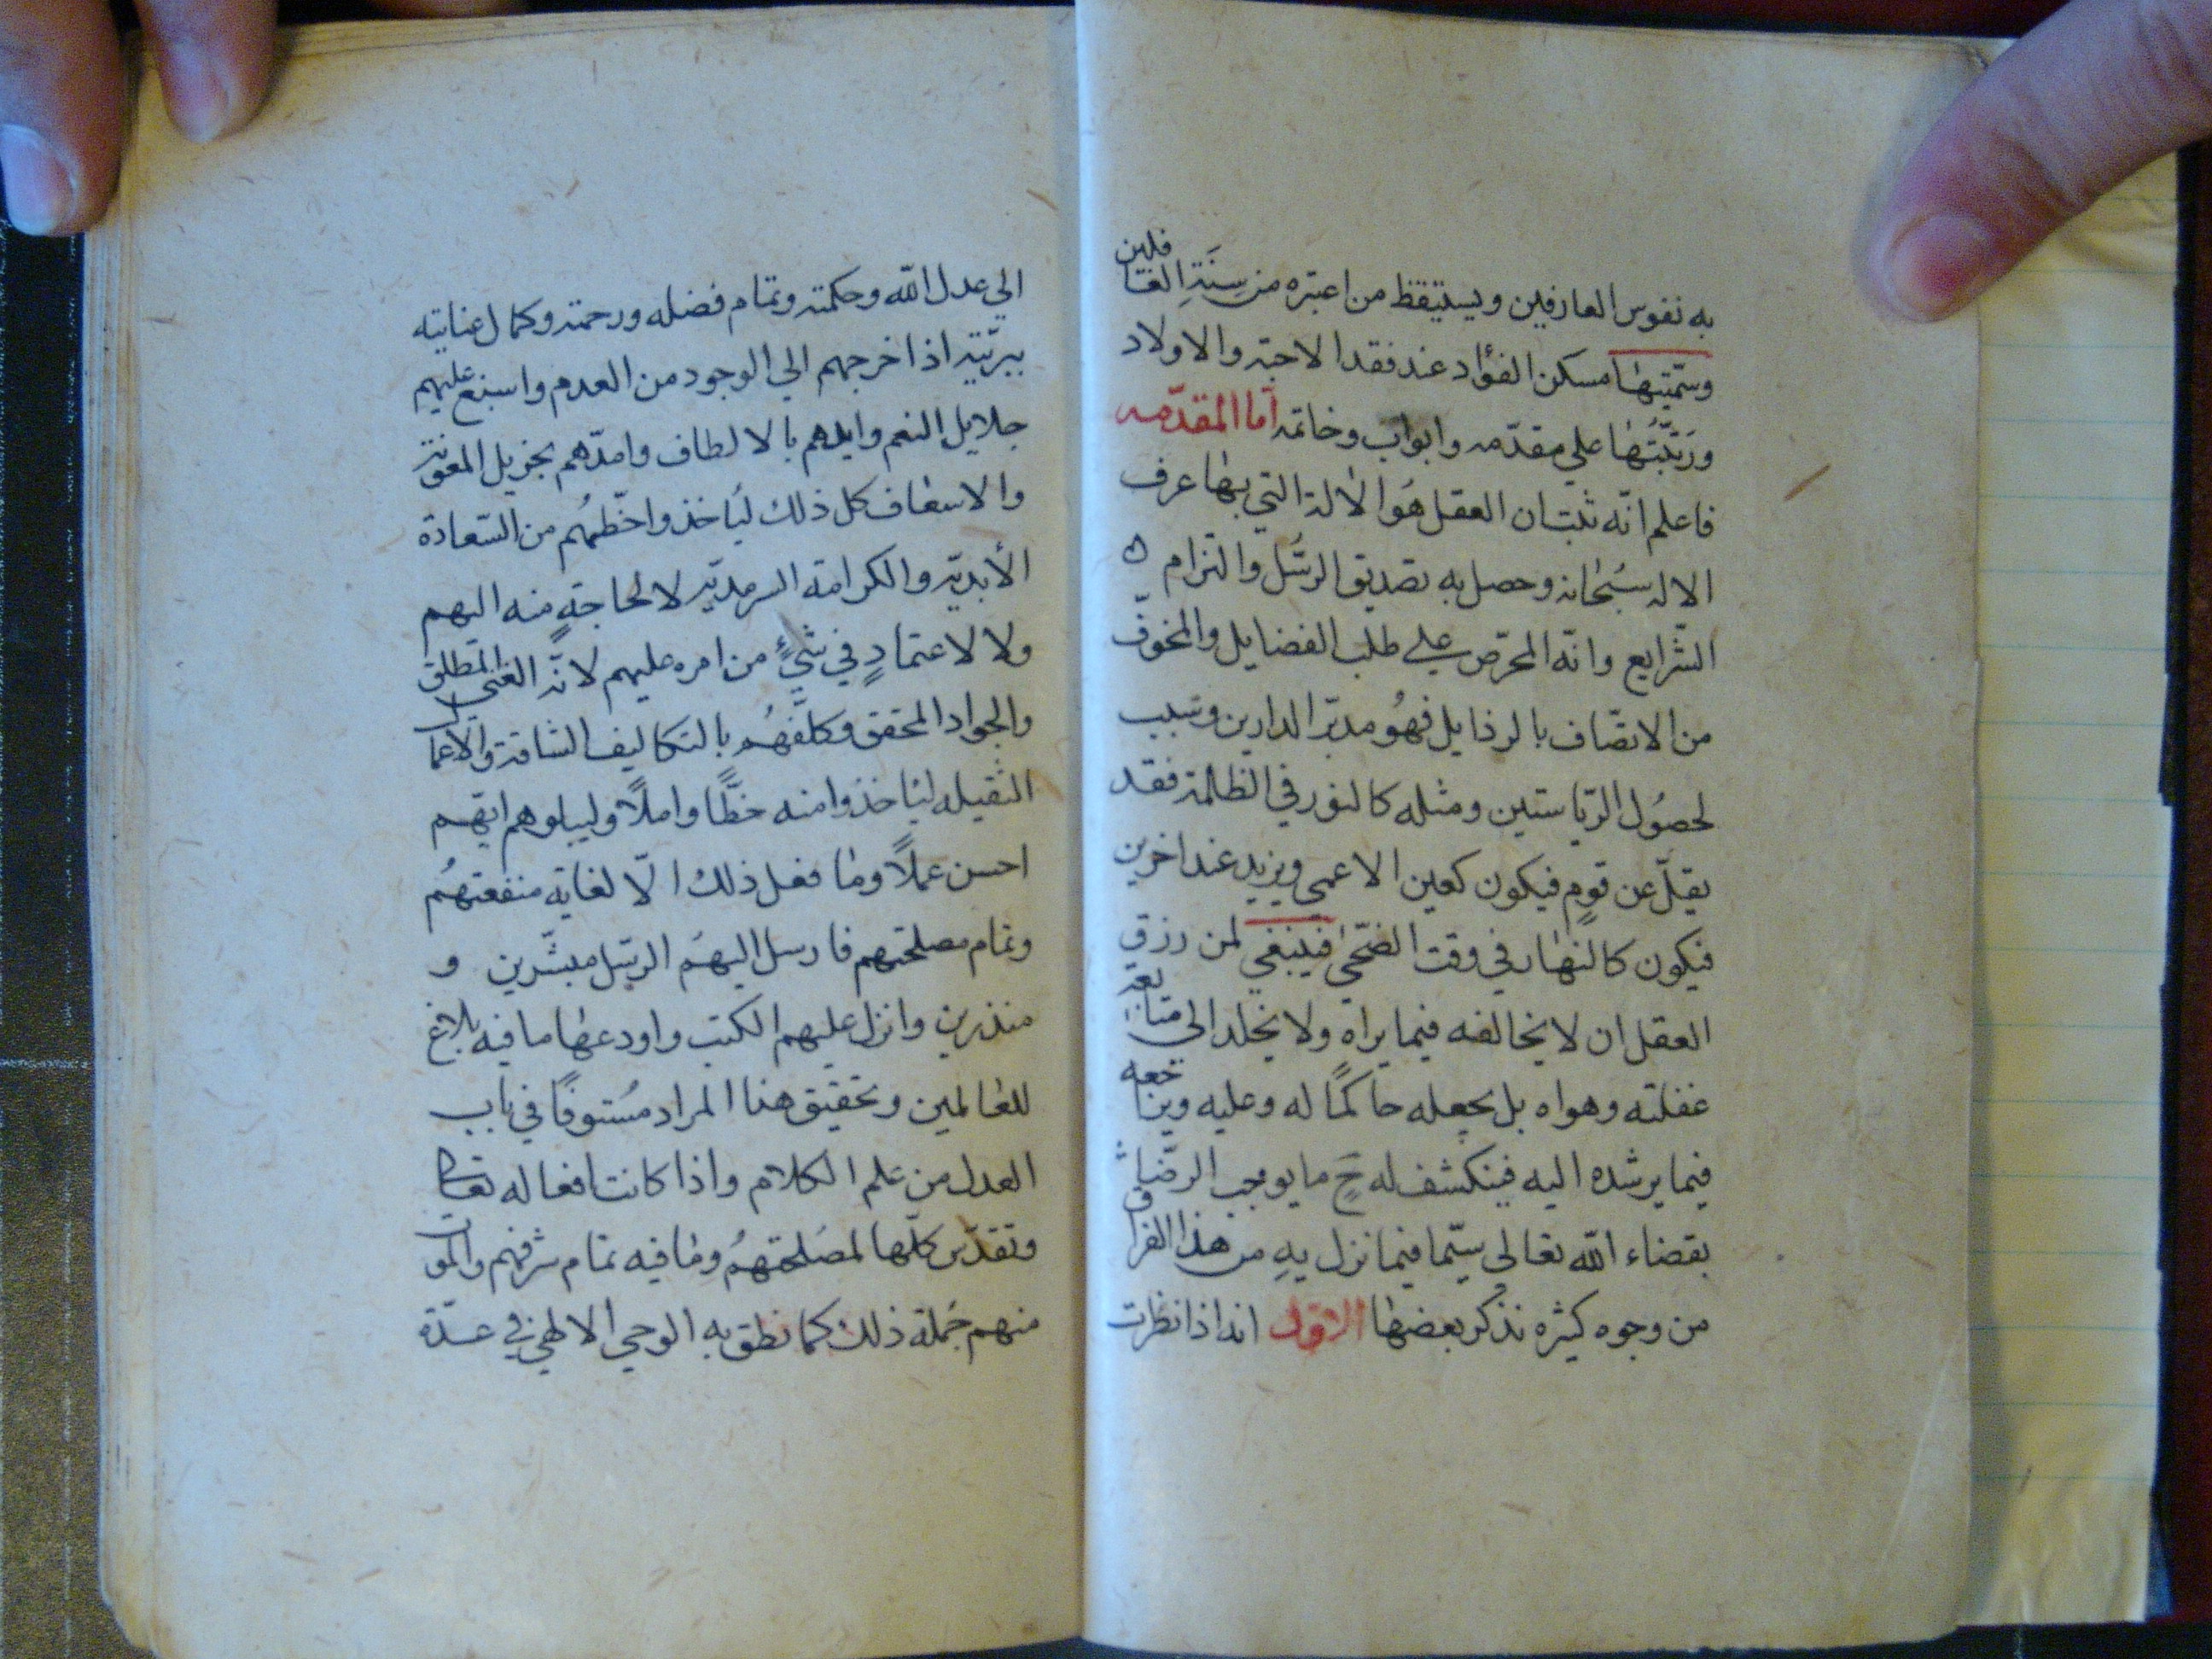 به نفوس العارفين ويستيقظ من اعتبره من سِنَةِ الغافلين
وسمّيتها مسكن الفؤاد عند فقد الاحبة والاولاد
ورَتّبتُها علي مقدّمه وابواب وخاتمه اما المقدّمه
فاعلم انّه ثبت ان العقل هُو الالة التي بها عرف
الاله سُبحانه وحصل به تصديق الرسُل والتزام
الشّرايع وانّه المحرّص علي طلب الفضايل والمخوّف
من الاتصّاف بالرذايل فهُو مدبّر الدارين وسبب
لحصُول الرّياستين ومثله كالنور في الظلمة فقد
يقلّ عن قومٍ فيكون كعين الاعمي ويزيد عند اخرين
فيكون كالنهار في وقت الضّحي فينبغي لمن رزق
العقل ان لا يخالفه فيما يراه ولا يخلد الي متابعة
غفلته وهواه بل يجعله حاكمًا له وعليه ويراجعه
فيما يرشده اليه فينكشف له حٓ ما يوجب الرضّا
بقضاء الله تعالى سيّما فيما نزل بهِ من هذا الفراق
من وجوه كثيره نذكر بعضها الاوّل انه اذا نظرت
الي عدل الله وحكمته وتمام فضله ورحمته وكمال عنايته
ببريّته اذ اخرجهم الي الوجود من العدم واسبغ عليهم
جلايل النعم وايدهم بالالطاف وامدّهم بجزيل المعونة
والاسعاف كل ذلك ليُاخذوا حظّهُم من السّعادة
الأبديّة والكرامة السرمديّة لا لحاجةٍ منه اليهم
ولا لاعتمادٍ في شيءٍ من امره عليهم لانّه الغني المطلق
والجواد المحقق وكلّفهُم بالتكاليف الشاقة والاعمال
الثقيله ليُاخذوا منه حظًّا واملًا وليبلوهم ايّهم
احسن عملًا وما فعل ذلك الّا لغاية منفعتهُم
وتمام مصلحتهم فارسل اليهمُ الرسّل مبشّرين و
منذرين وانزل عليهم الكتب واودعها ما فيه بلاغ
للعالمين وتحقيق هذا المراد مُستوفًا في باب
العدل من علم الكلام واذا كانت افعاله تعالى
وتقدّس كلّها لمصَلحتهمُ وما فيه تمام شرفهم والموت
منهم جُملة ذلك كما نطق به الوحي الالهي في عدّة